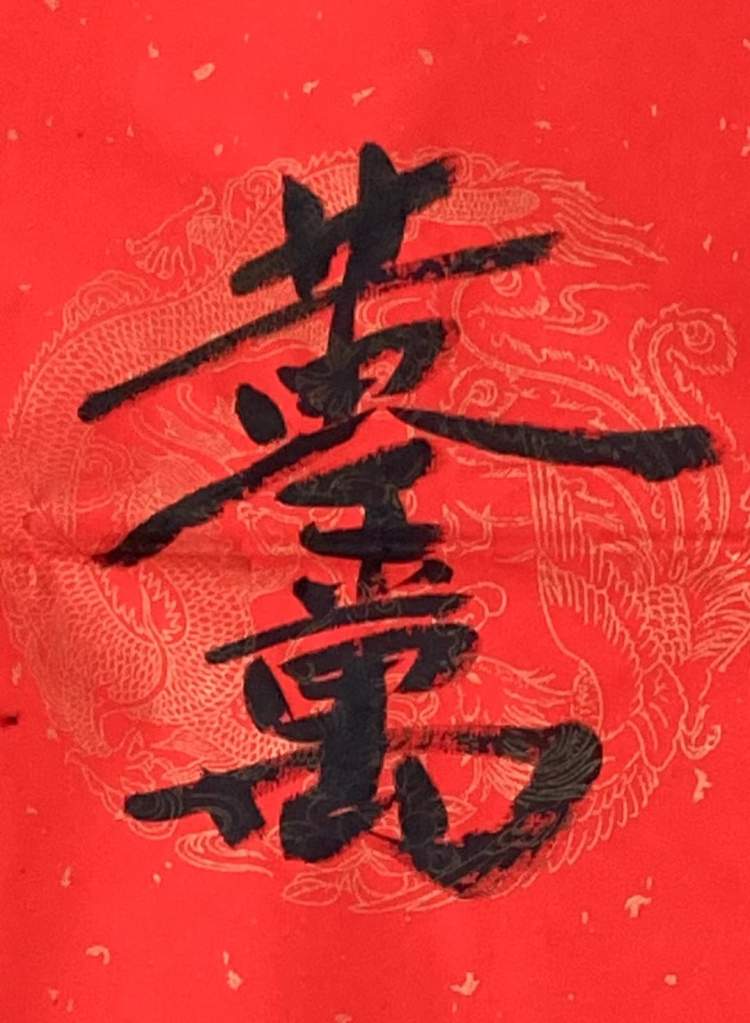 黄金萬兩